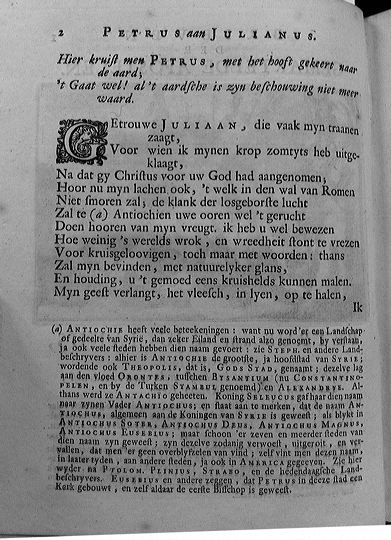 2 PETRUS aan JULIANUS.
Hier kruist men PETRUS, met het hooft gekeert naar
de aard;
't Gaat wel! al 't aardsche is zyn beschouwing niet meer
waard.
Getrouwe JULIAAN, die vaak myn traanen
zaagt,
Voor wien ik mynen krop zomtyts heb uitge-
klaagt,
Na dat gy Christus voor uw God had aangenomen;
Hoor nu myn lachen ook, 't welk in den wal van Romen
Niet smoren zal; de klank der losgeborste lucht
Zal te (a) Antiochien uwe ooren wel 't gerucht
Doen hooren van myn vreugt. ik heb u wel bewezen
Hoe weinig 's werelds wrok, en wreedheit stont te vrezen
Voor kruisgeloovigen, toch maar met woorden: thans
Zal myn bevinden, met natuurelyker glans,
En houding, u 't gemoed eens kruishelds kunnen malen.
Myn geest verlangt, het vleesch, in lyen, op te halen,
Ik
(a) ANTIOCHIE heeft veele beteekeningen: want nu word'er een Landschap
of gedeelte van Syrië, dan zeker Eiland en strand alzo genoemt, by verstaan,
ja ook veele steden hebben dien naam gevoert: zie STEPH. en andere Land-
beschryvers: alhier is ANTIOCHIE de grootste, ja hoofdstad van SYRIE;
wordende ook THEOPOLIS, dat is, GODS STAD, genaamt; dezelve lag
aan den vloed ORONTES, tusschen BYSANTIUM (nu CONSTANTINO-
PELEN, en by de Turken STAMBUL genoemd) en ALEXANDRYE. Al-
thans werd ze ANTACHIO geheeten. Koning SELEUCUS gaf haar dien naam
naar zynen Vader ANTIOCHUS; en staat aan te merken, dat de naam AN-
TIOCHUS, algemeen aan de Koningen van SYRIE is geweest; als blykt in
ANTIOCHUS SOTER, ANTIOCHUS DEUS, ANTIOCHUS MAGNUS,
ANTIOCHUS EUSEBIUS; maar schoon 'er zeven en meerder steden van
dien naam zyn geweest; zyn dezelve zodanig verwoest, uitgeroit, en ver-
vallen, dat men 'er geen overblyfzelen van vind; zelf vint men dezen naam,
in laater tyden, aan andere steden, ja ook in AMERICA gegeeven. Zie hier
wyder na PTOLOM. PLINIUS, STRABO, en de hedendaagsche Land-
beschryvers. EUSEBIUS en andere zeggen, dat PETRUS in deeze stad een
Kerk gebouwt, en zelf aldaar de eerste Bisschop is geweest.